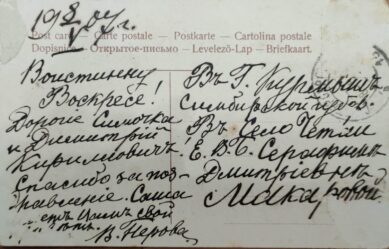 19 8/V 07 г.
Carte postale — Postkarte — Cartolina postale
Dopisnice — Открытое письмо — Levelező-Lap — Briefkaart.
Воистинну
Воскресе!
Дорогие Симочка
и Дмитрий
Кирилович!
Спасибо за поз-
дравление. Саша
шлетъ Вамъ свой
В. Перова
Въ Г. Курмышъ
Симбирской губер.
Въ Село Четаи
Е. В. Б. Серафимъ
Дмитриевнъ
Макаровой